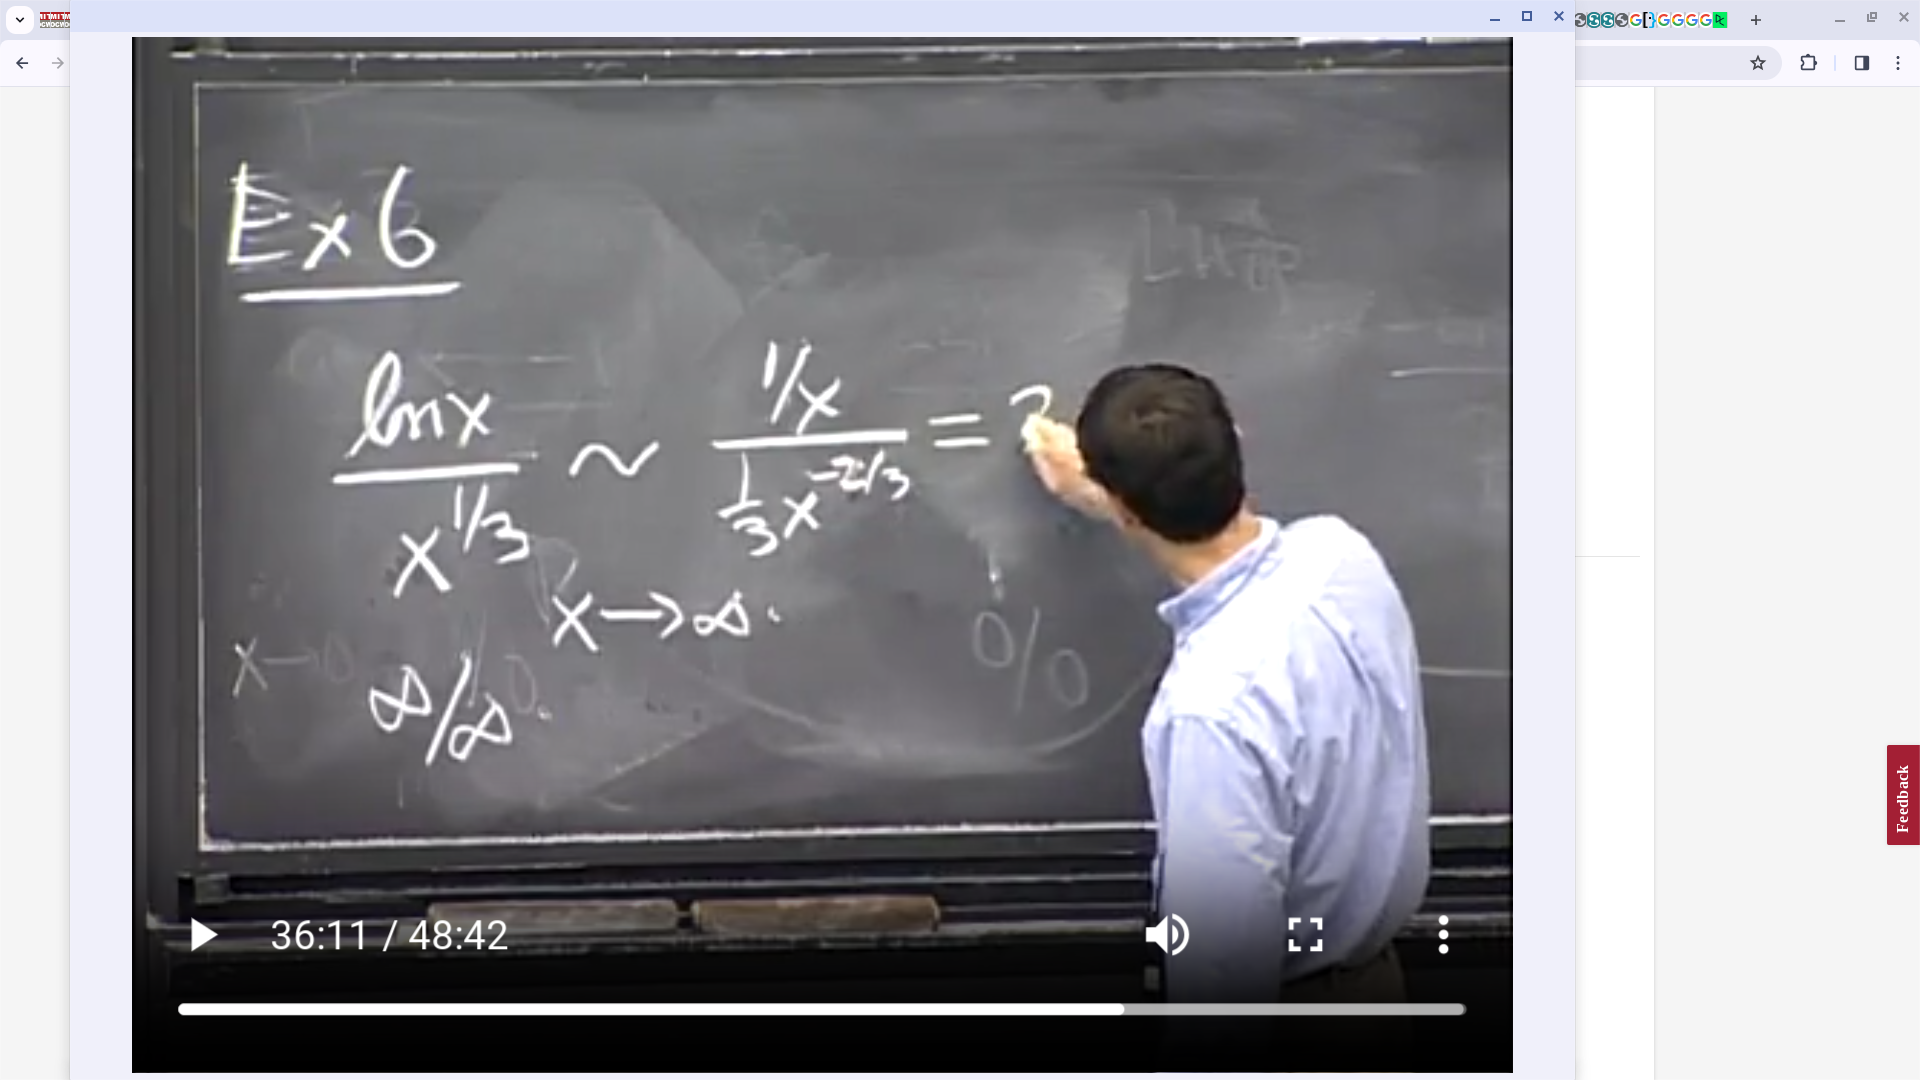 Ex 6
ln x / x^1/3 ~ 1/x / 1/3 x^-2/3 = 3
x → ∞.
x → 0
0/0
∞/∞.
36:11 / 48:42
Feedback